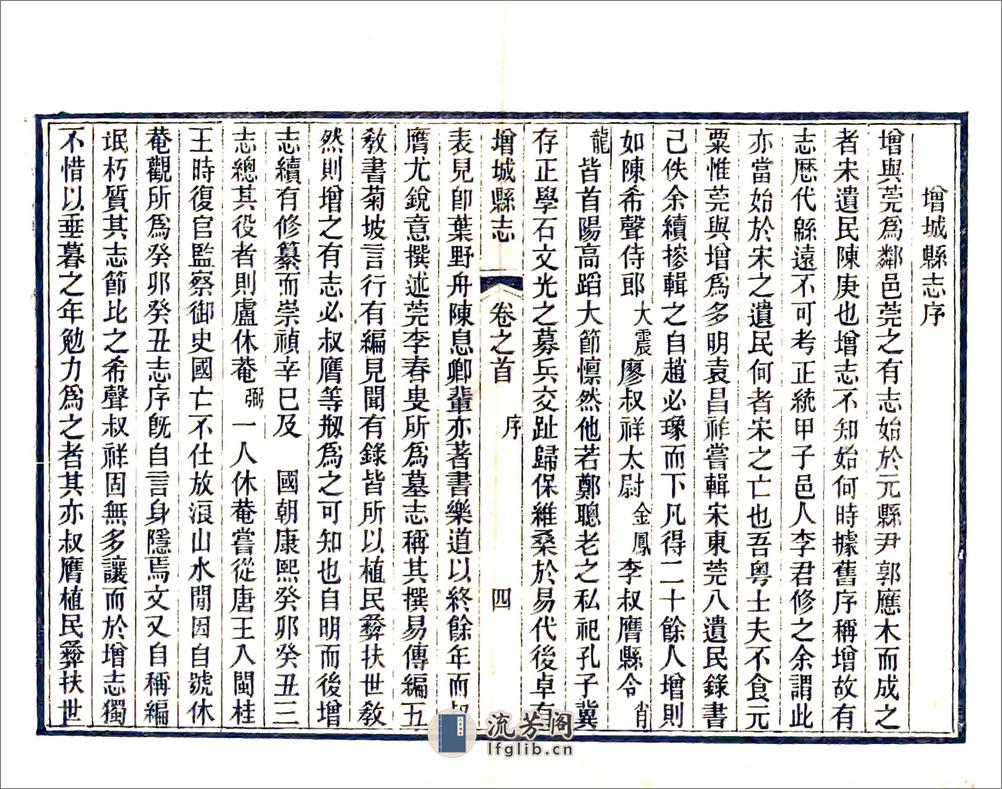 增城縣志序
增與莞爲鄰邑莞之有志始於元縣尹郭應木而成之
者宋遺民陳庚也增志不知始何時據舊序稱增故有
志歷代緜遠不可考正統甲子邑人李君修之余謂此
亦當始於宋之遺民何者宋之亡也吾粵士夫不食元
粟惟莞與增爲多明袁昌祚嘗輯宋東莞八遺民錄書
已佚余續摻輯之自趙必𤩪而下凡得二十餘人增則
如陳希聲侍郎大震廖叔祥太尉金鳳李叔膺縣令肖
龍皆首陽高蹈大節懍然他若鄭聰老之私祀孔子冀
存正學石文光之募兵交趾歸保維桑於易代後卓有
增城縣志 卷之首 序 四
表見卽葉野舟陳息卿輩亦著書樂道以終餘年而叔
膺尤銳意撰述莞李春叟所爲墓志稱其撰易傳編五
敎書菊坡言行有編見聞有錄皆所以植民彝扶世敎
然則增之有志必叔膺等剏爲之可知也自明而後增
志續有修纂而崇禎辛巳及 國朝康熙癸卯癸丑三
志總其役者則盧休菴弼一人休菴嘗從唐王入閩桂
王時復官監察御史國亡不仕放浪山水閒因自號休
菴觀所爲癸卯癸丑志序旣自言身隱焉文又自稱編
氓朽質其志節比之希聲叔祥固無多讓而於增志獨
不惜以垂暮之年勉力爲之者其亦叔膺植民彝扶世
流芳阁
lfglib.cn